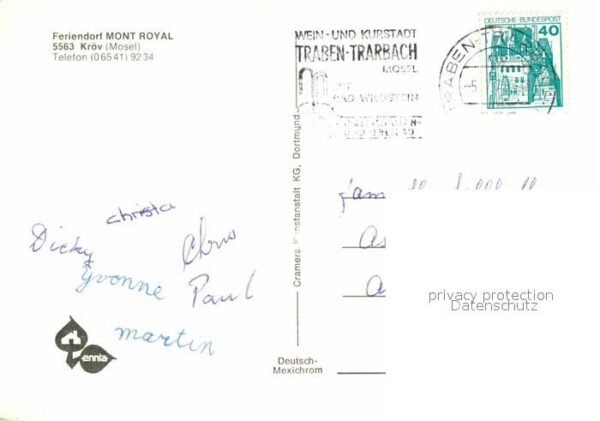 Feriendorf MONT ROYAL
5563 Kröv (Mosel)
Telefon (0 65 41) 92 34
WEIN- UND KURSTADT
TRABEN-TRARBACH
MOSEL
BAD WILDSTEIN
DEUTSCHE BUNDESPOST
40
TRABEN-TR
Cramers Kunstanstalt KG, Dortmund
christa
Dicky
Chris
Yvonne
Paul
martin
ennia
Deutsch-
Mexichrom
fam
privacy protection
Datenschutz